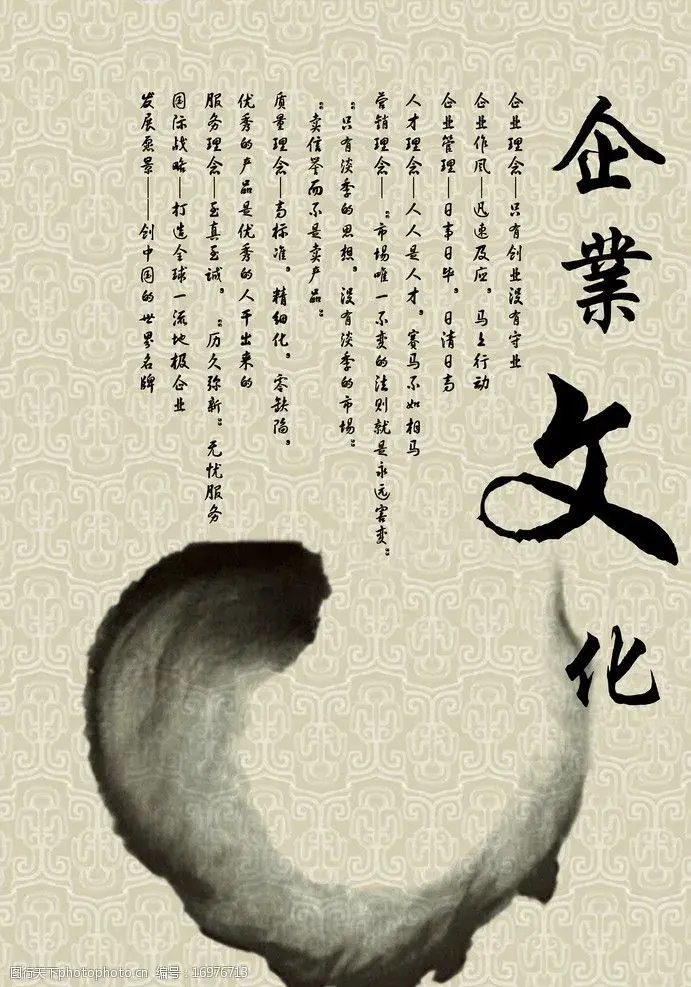 企業文化
企业理会—只有创业没有守业
企业作风—迅速及应。马上行动
企业管理—日事日毕。日清日高
人才理会—人人是人才。赛马不如相马
营销理会—“市场唯一不变的法则就是永远害变”
“只有淡季的思想。没有淡季的市场”
“卖信誉而不是卖产品”
质量理会—高标准。精细化。零缺陷。
优秀的产品是优秀的人干出来的
服务理会—至真至诚。“历久弥新”无忧服务
国际战略—打造全球一流地极企业
发展愿景——创中国的世界名牌
图行天下photophoto.cn 编号:16976713